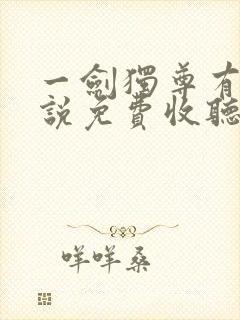 一劍獨尊有
說免費收聽
咩咩桑